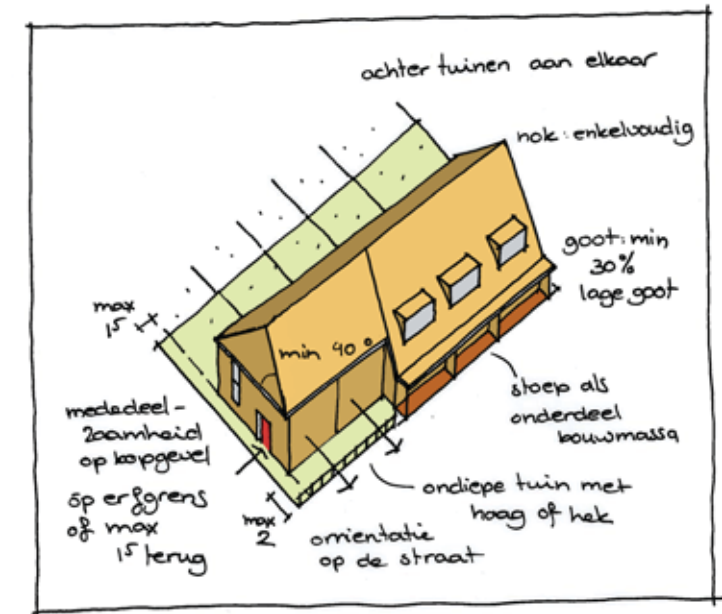 achter tuinen aan elkaar
nok: enkelvoudig
goot: min
30%
lage goot
max
1⁵
min 40°
stoep als
onderdeel
bouwmassa
mededeel-
zaamheid
op kopgevel
óp erfgrens
of max
1⁵ terug
max
2
ondiepe tuin met
haag of hek
orrientatie
op de straat